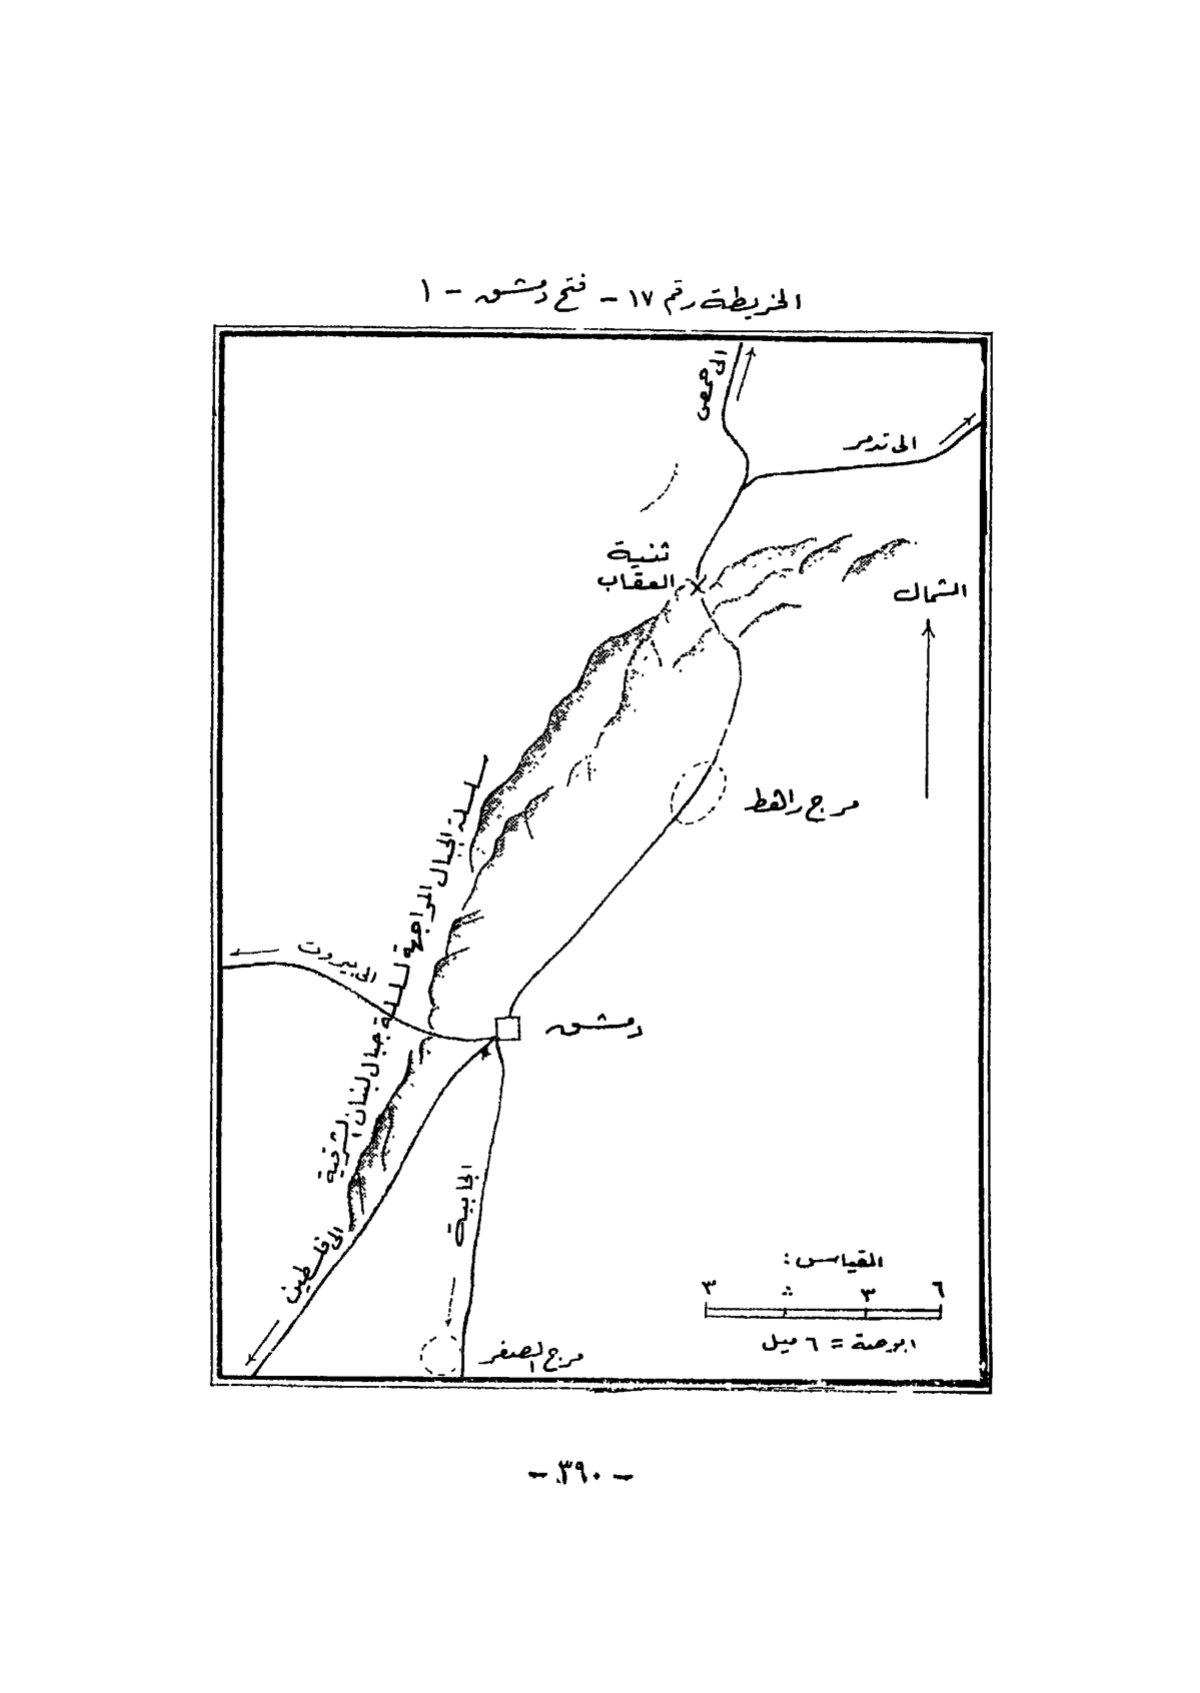 الخريطة رقم ١٧ - فتح دمشق - ١
الى حمص
الى تدمر
ثنية
العقاب
الشمال
مرج راهط
سلسلة الجبال المواجهة لسلسلة جبال لبنان الشرقية
الى بيروت
دمشق
الجابية
الى فلسطين
مرج الصفر
القياس:
٣ ٠ ٣ ٦
ابوصة = ٦ ميل
- ٣٩٠ -